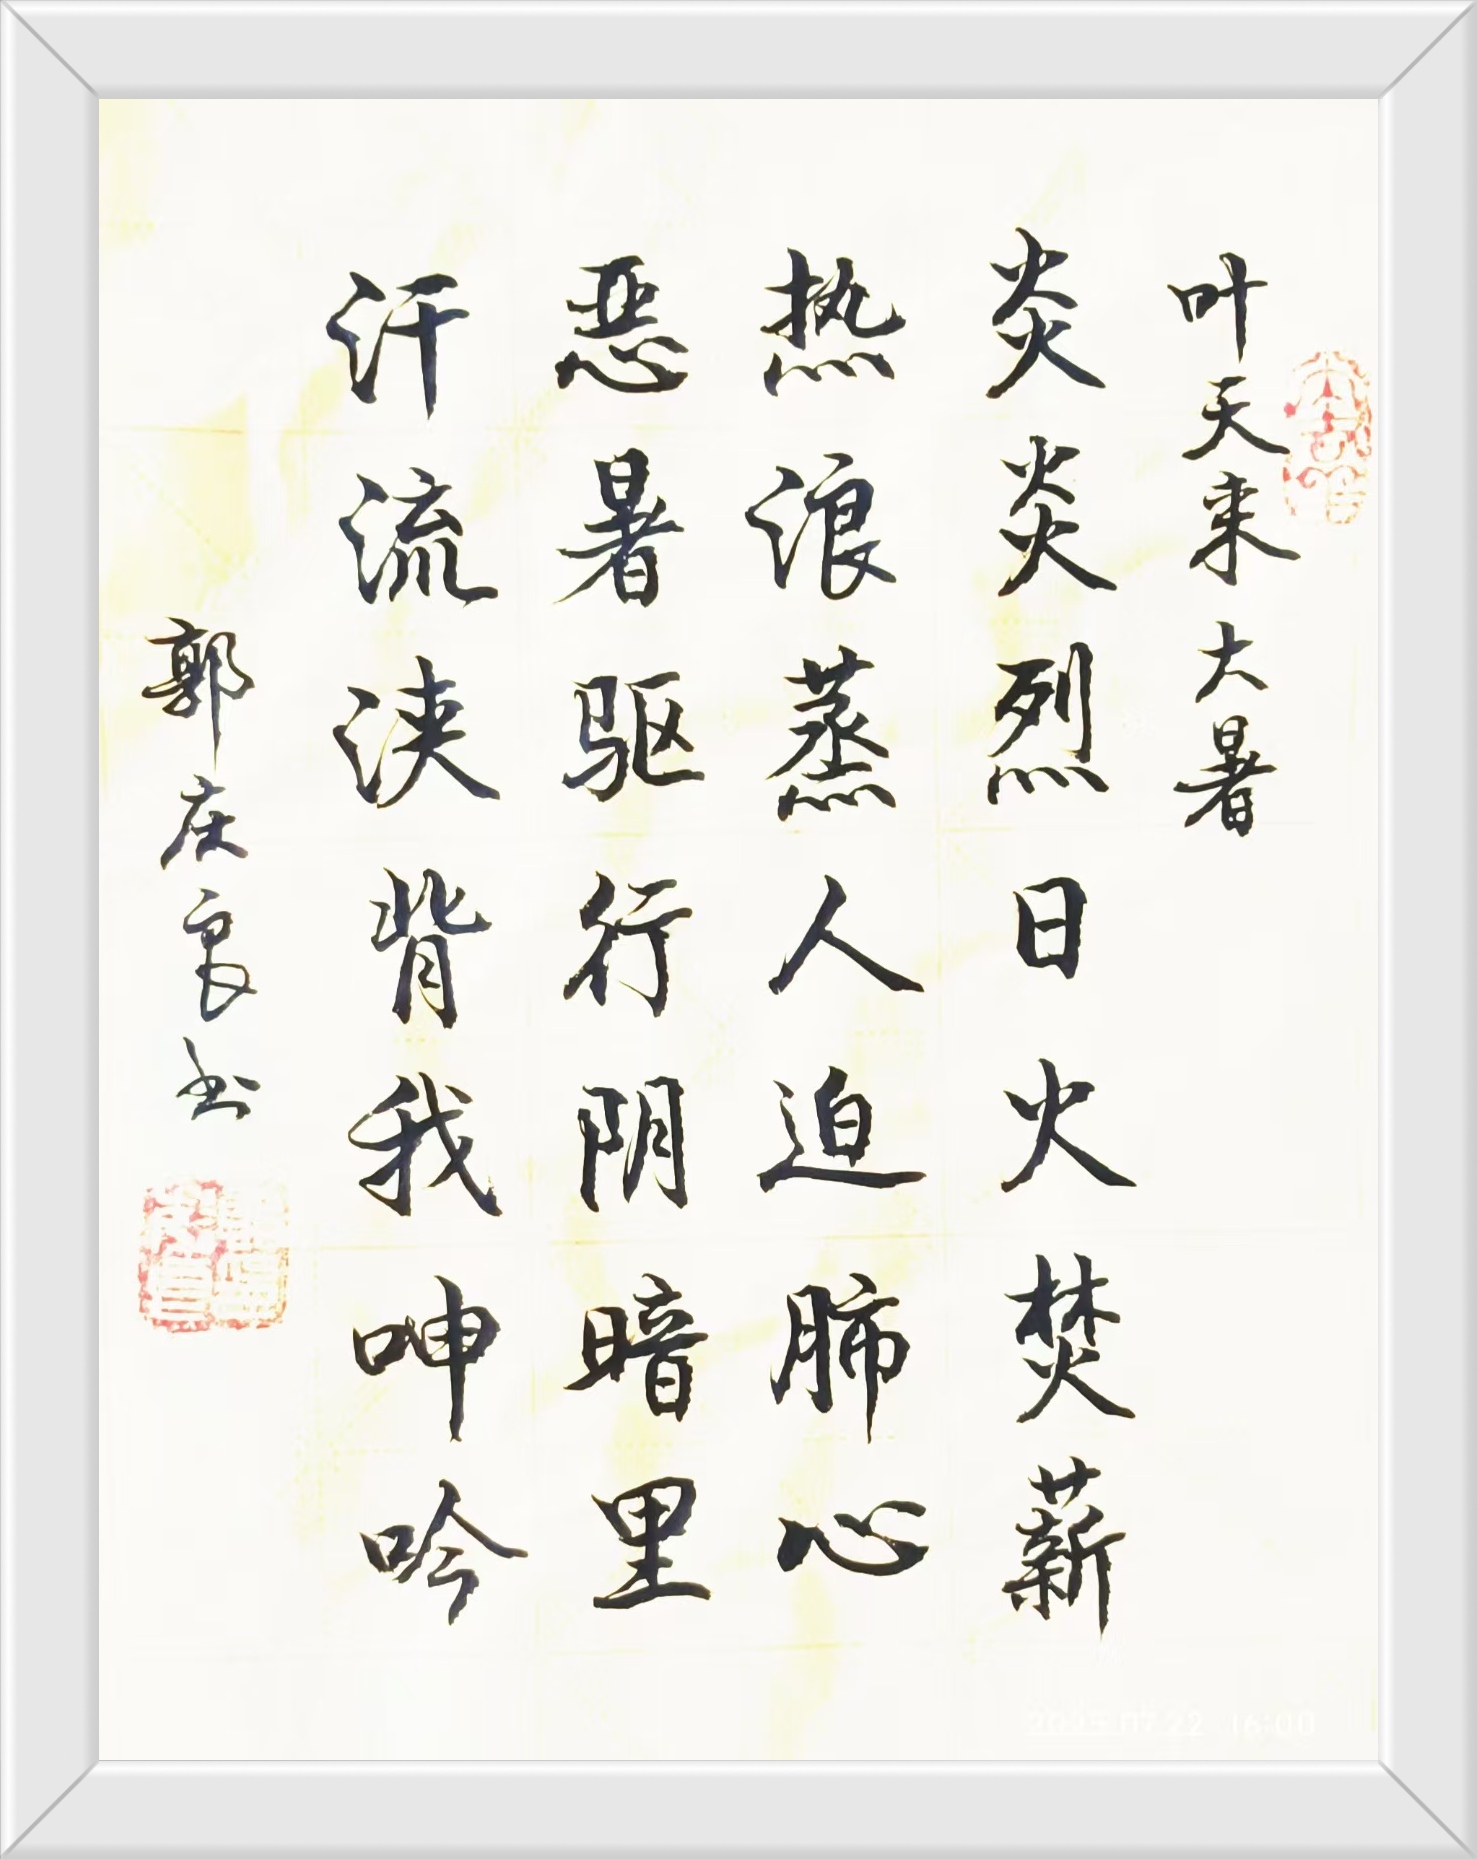 叶天来大暑
炎炎烈日火焚薪
热浪蒸人迫肺心
恶暑驱行阴暗里
汗流浃背我呻吟
郭庆良书